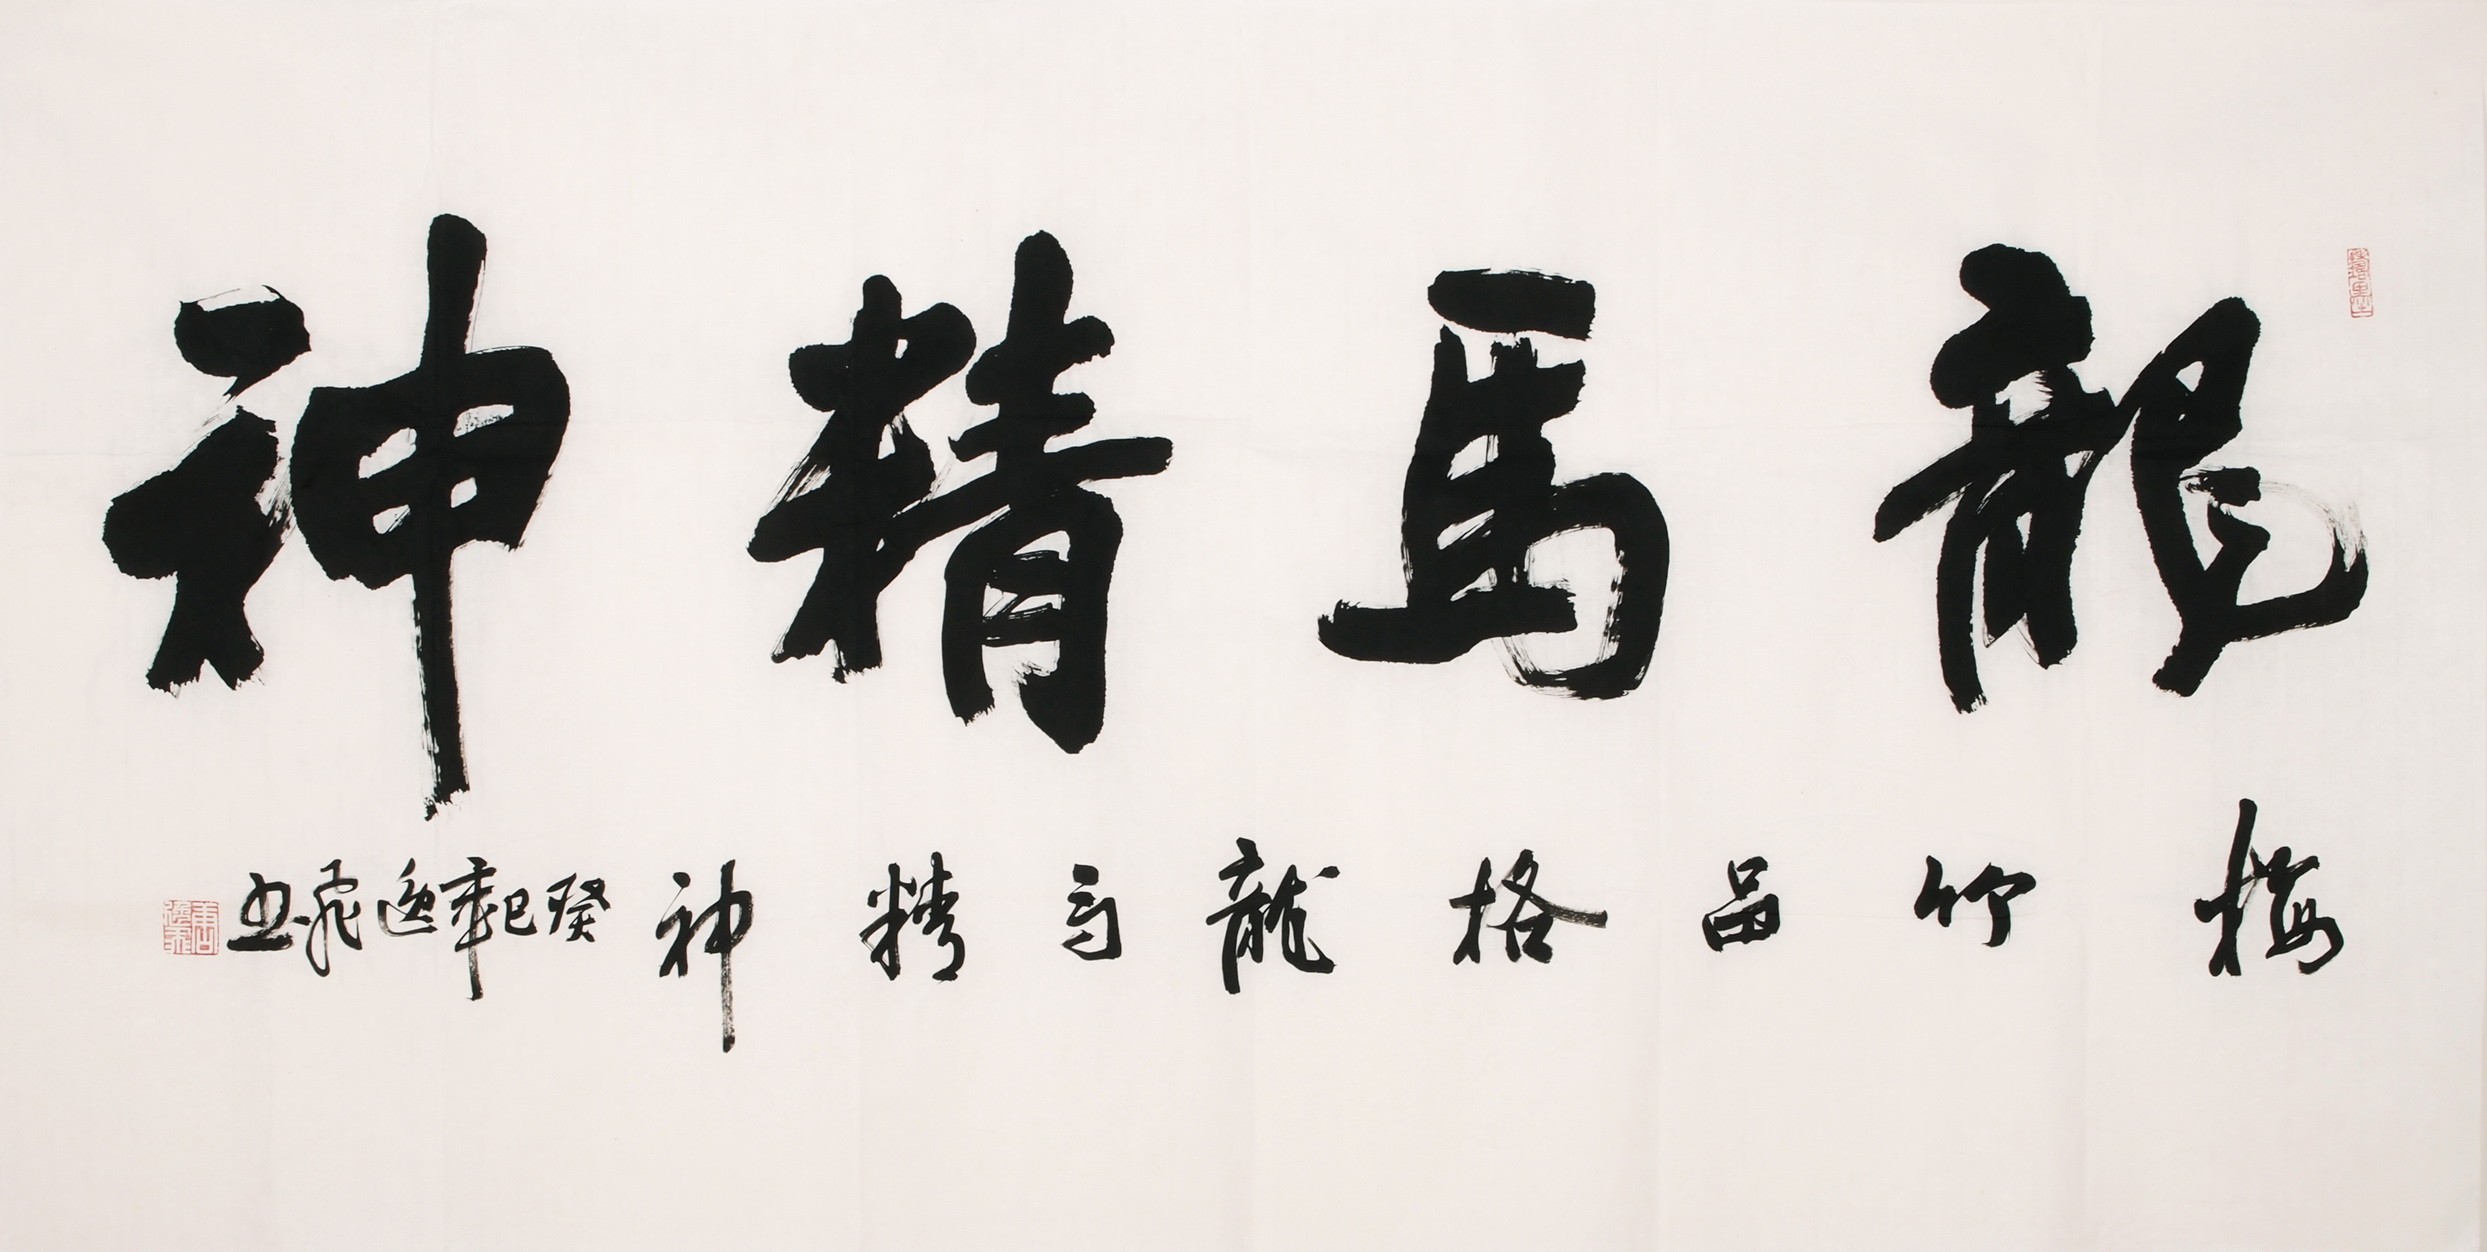 龍馬精神
梅竹品格龍馬精神癸巳年逸飛書